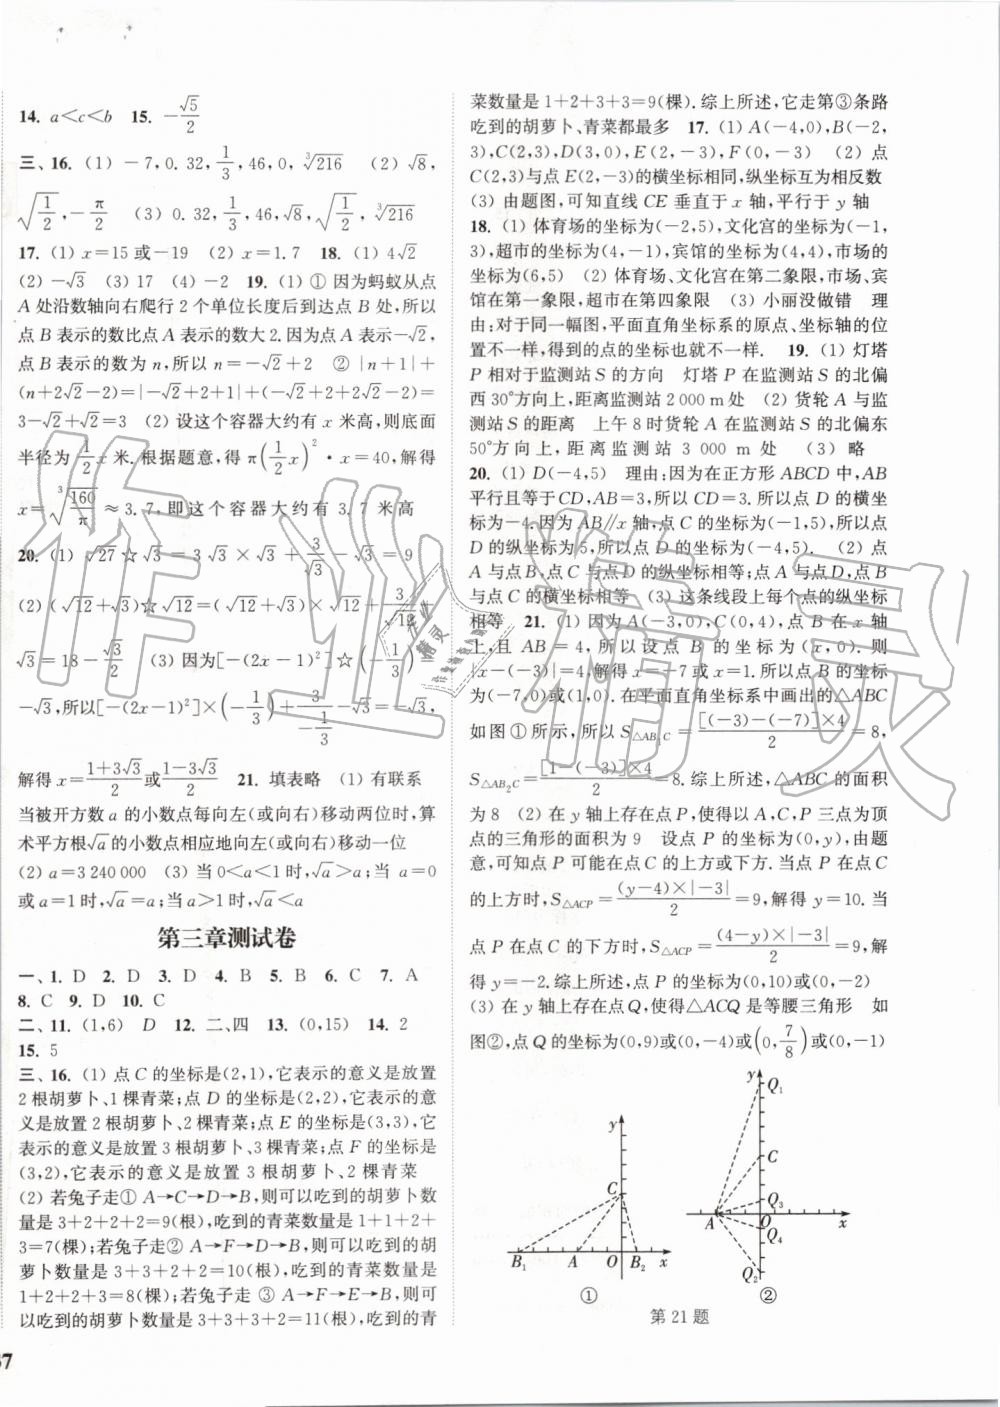 14. a<c<b　15. -√5/2
三、16. (1) -7, 0.32, 1/3, 46, 0, ∛216　(2) √8,
√(1/2), -π/2　(3) 0.32, 1/3, 46, √8, √(1/2), ∛216
17. (1) x=15 或-19　(2) x=1.7　18. (1) 4√2
(2) -√3　(3) 17　(4) -2　19. (1) ① 因为蚂蚁从点
A 处沿数轴向右爬行 2 个单位长度后到达点 B 处,所以
点 B 表示的数比点 A 表示的数大 2. 因为点 A 表示-√2,
点 B 表示的数为 n,所以 n=-√2+2　② |n+1|+
(n+2√2-2)=|-√2+2+1|+(-√2+2+2√2-2)=
3-√2+√2=3　(2) 设这个容器大约有 x 米高,则底面
半径为 1/2 x 米. 根据题意,得 π(1/2 x)²·x=40,解得
x=∛(160/π)≈3.7,即这个容器大约有 3.7 米高
20. (1) √27☆√3=3√3×√3+√3/√3-√3=9
(2) (√12+√3)☆√12=(√12+√3)×√12+3/√12-
√3=18-√3/2　(3) 因为[-(2x-1)²]☆(-1/3)=
-√3,所以[-(2x-1)²]×(-1/3)+√3/(-1/3)-√3=-√3,
解得 x=(1+3√3)/2 或 (1-3√3)/2　21. 填表略　(1) 有联系
当被开方数 a 的小数点每向左(或向右)移动两位时,算
术平方根√a的小数点相应地向左(或向右)移动一位
(2) a=3 240 000　(3) 当 0<a<1 时,√a>a;当 a=0
或 a=1 时,√a=a;当 a>1 时,√a<a
第三章测试卷
一、1. D　2. D　3. D　4. B　5. B　6. C　7. A
8. C　9. D　10. C
二、11. (1,6)　D　12. 二、四　13. (0,15)　14. 2
15. 5
三、16. (1) 点 C 的坐标是(2,1),它表示的意义是放置
2 根胡萝卜、1 棵青菜;点 D 的坐标是(2,2),它表示的意
义是放置 2 根胡萝卜、2 棵青菜;点 E 的坐标是(3,3),它
表示的意义是放置 3 根胡萝卜、3 棵青菜;点 F 的坐标是
(3,2),它表示的意义是放置 3 根胡萝卜、2 棵青菜
(2) 若兔子走① A→C→D→B,则可以吃到的胡萝卜数
量是 3+2+2+2=9(根),吃到的青菜数量是 1+1+2+
3=7(棵);若兔子走② A→F→D→B,则可以吃到的胡
萝卜数量是 3+3+2+2=10(根),吃到的青菜数量是
1+2+2+3=8(棵);若兔子走 ③ A→F→E→B,则可
以吃到的胡萝卜数量是 3+3+3+2=11(根),吃到的青
37
菜数量是 1+2+3+3=9(棵). 综上所述,它走第③条路
吃到的胡萝卜、青菜都最多　17. (1) A(-4,0),B(-2,
3),C(2,3),D(3,0),E(2,-3),F(0,-3)　(2) 点
C(2,3)与点 E(2,-3)的横坐标相同,纵坐标互为相反数
(3) 由题图,可知直线 CE 垂直于 x 轴,平行于 y 轴
18. (1) 体育场的坐标为(-2,5),文化宫的坐标为(-1,
3),超市的坐标为(4,-1),宾馆的坐标为(4,4),市场的
坐标为(6,5)　(2) 体育场、文化宫在第二象限,市场、宾
馆在第一象限,超市在第四象限　(3) 小丽没做错　理
由:对于同一幅图,平面直角坐标系的原点、坐标轴的位
置不一样,得到的点的坐标也就不一样.　19. (1) 灯塔
P 相对于监测站 S 的方向　灯塔 P 在监测站 S 的北偏
西 30°方向上,距离监测站 2 000 m 处　(2) 货轮 A 与监
测站 S 的距离　上午 8 时货轮 A 在监测站 S 的北偏东
50°方向上,距离监测站 3 000 m 处　(3) 略
20. (1) D(-4,5)　理由:因为在正方形 ABCD 中,AB
平行且等于 CD,AB=3,所以 CD=3. 所以点 D 的横坐
标为-4. 因为 AB∥x 轴,点 C 的坐标为(-1,5),所以点
D 的纵坐标为 5,所以点 D 的坐标为(-4,5).　(2) 点
A 与点 B、点 C 与点 D 的纵坐标相等;点 A 与点 D、点 B
与点 C 的横坐标相等　(3) 这条线段上每个点的纵坐标
相等　21. (1) 因为 A(-3,0),C(0,4),点 B 在 x 轴
上,且 AB=4,所以设点 B 的坐标为(x,0). 则
|x-(-3)|=4,解得 x=-7 或 x=1. 所以点 B 的坐标
为(-7,0)或(1,0). 在平面直角坐标系中画出的△ABC
如图①所示,所以 S△AB₁C=[(-3)-(-7)]×4/2=8,
S△AB₂C=[1-(-3)]×4/2=8. 综上所述,△ABC 的面积
为 8　(2) 在 y 轴上存在点 P,使得以 A,C,P 三点为顶
点的三角形的面积为 9　设点 P 的坐标为(0,y),由题
意,可知点 P 可能在点 C 的上方或下方. 当点 P 在点 C
的上方时,S△ACP=(y-4)×|-3|/2=9,解得 y=10. 当
点 P 在点 C 的下方时,S△ACP=(4-y)×|-3|/2=9,解
得 y=-2. 综上所述,点 P 的坐标为(0,10)或(0,-2)
(3) 在 y 轴上存在点 Q,使得△ACQ 是等腰三角形　如
图②,点 Q 的坐标为(0,9)或(0,-4)或(0,7/8)或(0,-1)
y
C
B₁ A O B₂ x
①
y
Q₁
C
Q₃
A O x
Q₄
Q₂
②
第 21 题
作业精灵